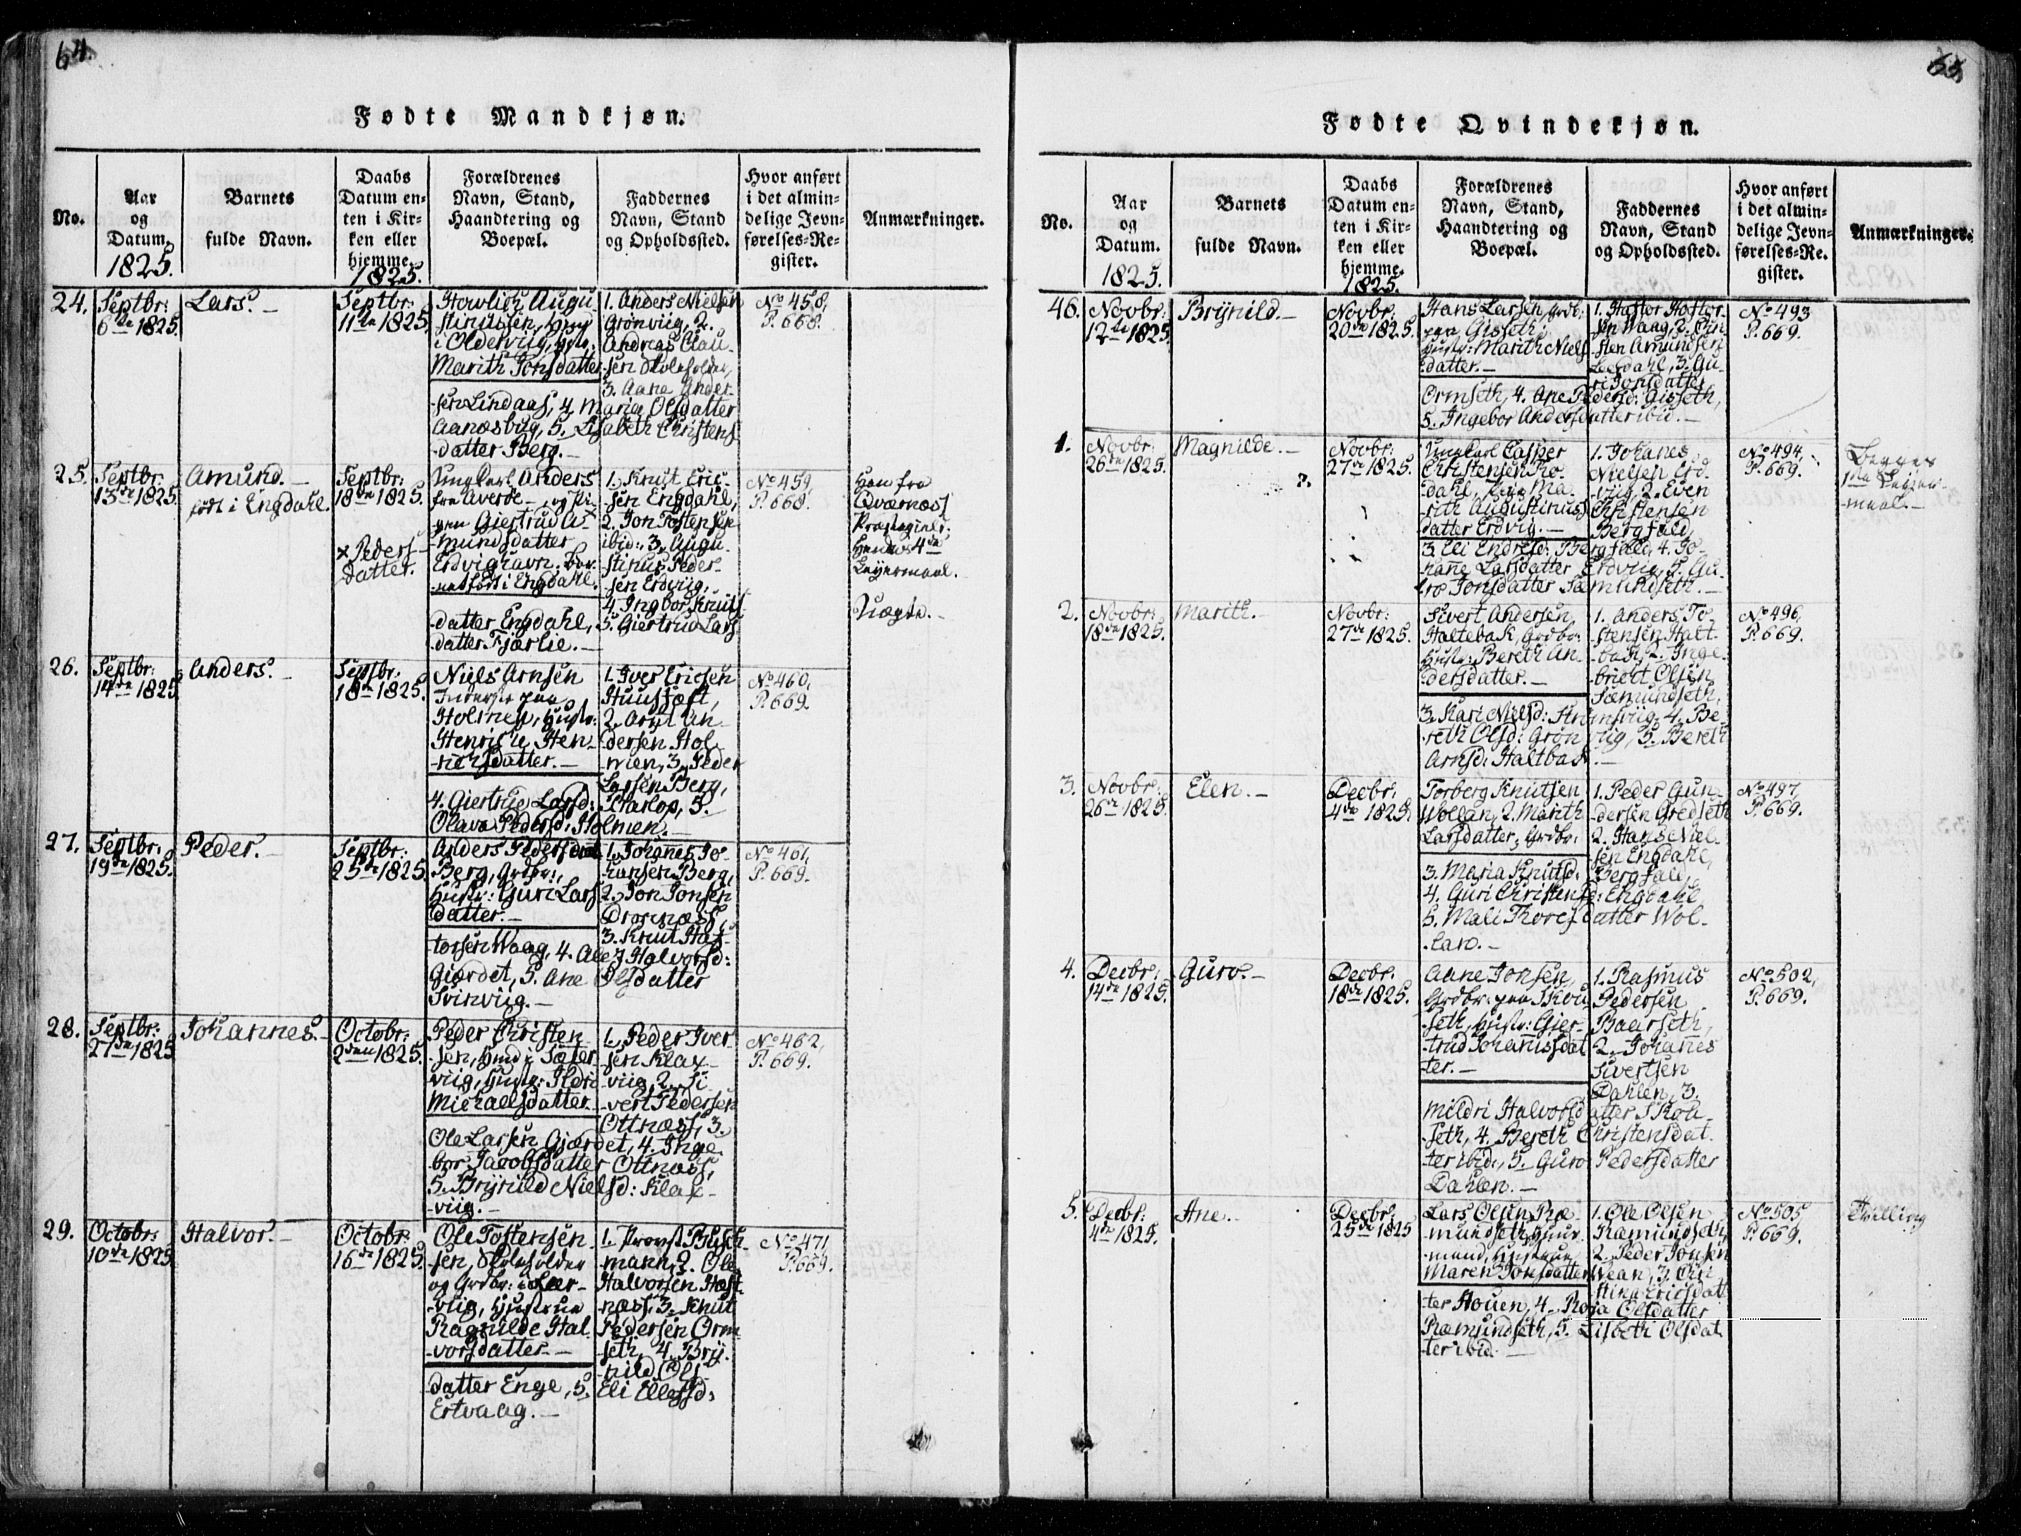 64.
Fødte Mandkjøn.
No.
Aar
og
Datum.
1825.
Barnets
fulde Navn.
Daabs
Datum en-
ten i Kir-
ken eller
hjemme.
1825.
Forældrenes
Navn, Stand,
Haandtering og
Boepæl.
Faddernes
Navn, Stand
og Opholdssted.
Hvor anført
i det almin-
delige Jevn-
førelses-Re-
gister.
Anmærkninger.
24.
Septbr:
6te 1825.
Lars. –
Septbr:
11te 1825
Augu-
stinussen,
i Oldervüg,
Marith Jonsdatter
1. Anders Nielsen
Grönviig, 2.
Andreas Clau-
sen Skoleholder,
3. Aane Ander-
sen Lindaas, 4 Maria Olsdatter
Aanæsbüg, 5. Lisabeth Christens
datter Berg. –
No 458,
P. 668.
25.
Septbr:
13de 1825.
Amund. –
født i Engdahl.
Septbr:
18de 1825.
x Peders-
datter.
Ungkarl Anders
fra Averöe – og pi-
gen Giertrud A-
mundsdatter
Ertvigravn. Bar-
net født i Engdahl.
1. Knut Eric-
sen Engdahl,
2. Jon Tostensen
ibid:, 3. Augu-
stinus Peder-
sen Erdviig,
4. Ingbor Knuts
datter Engdahl, 5. Giertrud Lars
datter Fjærlie. –
No 459
P. 668.
Han fra
Qværnæs
Præstegield,
Hendes 4de
Leyermaal. –
Uægte. –
26.
Septbr:
14de 1825
Anders. –
Septbr:
18de 1825.
Niels Arnsen
Inderste paa
Holmen, Hustr:
Henrikke Hen-
richsdatter. –
1. Iver Ericsen
Huusfæst,
2. Arnt An-
dersen Hol-
men, 3. Peder
Larsen Berg,
4. Giertrud Larsd: Skarlop, 5.
Olava Pedersd: Holmen. –
No 460,
P. 669.
27.
Septbr:
19de 1825
Peder. –
Septbr:
25de 1825.
Anders Peders
Berg, Grdbr:,
Hustr: Guri Lars
datter. –
1. Johanes Jo-
hansen Berg,
2. Jon Jonsen
Dromnæss,
3. Knut Haf-
torsen Waag, 4. Ales Halvorsd:
Giærdet, 5. Ane Olsdatter
Svinviig. –
No 461,
P. 669.
28.
Septbr:
27de 1825
Johannes. –
Octobr:
2den 1825.
Peder Christen-
sen, Hmd i Sæter
viig, Hustr: Ildri
Michaelsdatter. –
1. Peder Iver
sen Klax-
viig, 2. Si-
vert Pedersen
Ottnæss, 3.
Ole Larsen Gjærdet, 4. Inge
bor Jacobsdatter Ottnæss,
5. Brynild Nielsd: Klax-
viig. –
No 462,
P. 669.
29.
Octobr:
10de 1825
Halvor. –
Octobr:
16de 1825.
Ole Tostensen-
sen, Skoleholder
og Grdbr: i Lær-
viig, Hustrue
Ragnilde Hal
vorsdatter. –
1. Provst Busch-
mann, 2. Ole
Halvorsen Hest-
næss, 3. Knut
Pedersen Orm
seth, 4. Bry-
nild Ols-
datter Enge, 5. Eli Ellefsd:
Ertvaag. –
No 471,
P. 669.
65.
Fødte Qvindekjøn.
No.
Aar
og
Datum.
1825.
Barnets
fulde Navn.
Daabs
Datum en-
ten i Kir-
ken eller
hjemme.
1825.
Forældrenes
Navn, Stand,
Haandtering og
Boepæl.
Faddernes
Navn, Stand
og Opholdssted.
Hvor anført
i det almin-
delige Jevn-
førelses-Re-
gister.
Anmærkninger.
46.
Novbr:
12te 1825.
Brynild. –
Novbr:
20de 1825.
Hans Larsen, Grdb:
paa Gisseth,
Hustr: Marith Niels
datter. –
1. Haftor Haftor-
sen Waag, 2. Chri-
sten Amundsen
Leesdahl, 3. Gu-
ri Jonsdatter
Ormseth, 4. Ane Pedersd: Gisseth,
5. Ingebor Andersdatter ibid. –
No 493
P. 669.
1.
Novbr:
26de 1825.
Magnilde. –
Novbr:
27de 1825.
Ungkarl Casper
Christensen Ro-
dahl, Pige Ma-
rith Augustinus
datter Erdvig. –
1. Johanes
Nielsen Erd-
viig, 2. Even
Christensen
Bergfald,
3. Eli Endresd: Bergfald, 4. Jo-
hane Larsdatter Erdviig, 5. Gu-
ro Jonsdatter Sæmundseth. –
No 494,
P. 669.
Begges
1ste Leyer-
maal. –
2.
Novbr:
18de 1825.
Marith. –
Novbr:
27de 1825.
Sivert Andersen,
Haltebak, Grdbr:
Hustr: Bereth An-
dersdatter. –
1. Anders To-
stensen Halt-
bak, 2. Inge-
briect Olsen
Sæmundseth,
3. Kari Nielsd: Strømsviig, 4. Be-
reth Olsd: Grönviig, 5. Bereth
Arnsd: Haltbak. –
No 496,
P. 669.
3.
Novbr:
26de 1825.
Elen. –
Decbr:
4de 1825.
Torberg Knutsen
Wollan, 2. Marith
Larsdatter, Grdbr:
1. Peder Gun-
dersen Gredseth
2. Hans Niel-
sen Engdahl,
3. Maria Knutsd: Bergfald,
4. Guri Christensd: Engdahl
5. Mali Thoresdatter Wol-
lan. –
No 497,
P. 669.
4.
Decbr:
14de 1825.
Guro. –
Decbr:
18de 1825.
Aane Jonsen,
Grdbr: paa Skou-
seth, Hustr: Gier-
trud Johanisdat-
ter. –
1. Rasmus
Pedersen
Baaseth,
2. Johanes
Sivertsen
Dahlen, 3.
Mildri Halvorsdatter Skou-
seth, 4. Bereth Christensdat-
ter ibid:, 5. Guro Pedersdatter
Dahlen. –
No 502,
P. 669.
5.
Decbr:
4de 1825.
Ane. –
Decbr:
25de 1825
Lars Olsen Ræ-
mundseth, Huus-
mand, Hustrue
Maren Jonsdatter
1. Ole Olsen
Ræmundseth,
2. Peder Jonsen
Wean, 3. Chri-
stina Ericsdat
ter Houen, 4. Roja Olsdatter
Ræmundseth, 5. Lisbeth Olsdat
ter ibid. –
No 505
P. 669.
Tvilling